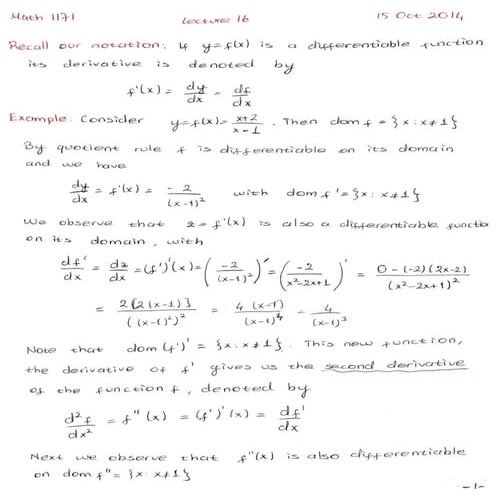 Math 1171 Lecture 16 15 Oct 2014
Recall our notation: If y=f(x) is a differentiable function
its derivative is denoted by
f'(x) = dy/dx = df/dx
Example: Consider y=f(x)= (x+2)/(x-1). Then dom f = {x: x≠1}
By quotient rule f is differentiable on its domain
and we have
dy/dx = f'(x) = -2/(x-1)² with dom f' = {x: x≠1}
We observe that z=f'(x) is also a differentiable functio
on its domain, with
df'/dx = dz/dx = (f')'(x) = (-2/(x-1)²)' = (-2/(x²-2x+1))' = (0-(-2)(2x-2))/(x²-2x+1)²
= 2(2(x-1))/((x-1)²)² = 4(x-1)/(x-1)⁴ = 4/(x-1)³
Note that dom(f')' = {x: x≠1}. This new function,
the derivative of f' gives us the second derivative
of the function f, denoted by
d²f/dx² = f''(x) = (f')'(x) = df'/dx
Next we observe that f''(x) is also differentiable
on dom f'' = {x: x≠1}
-1-